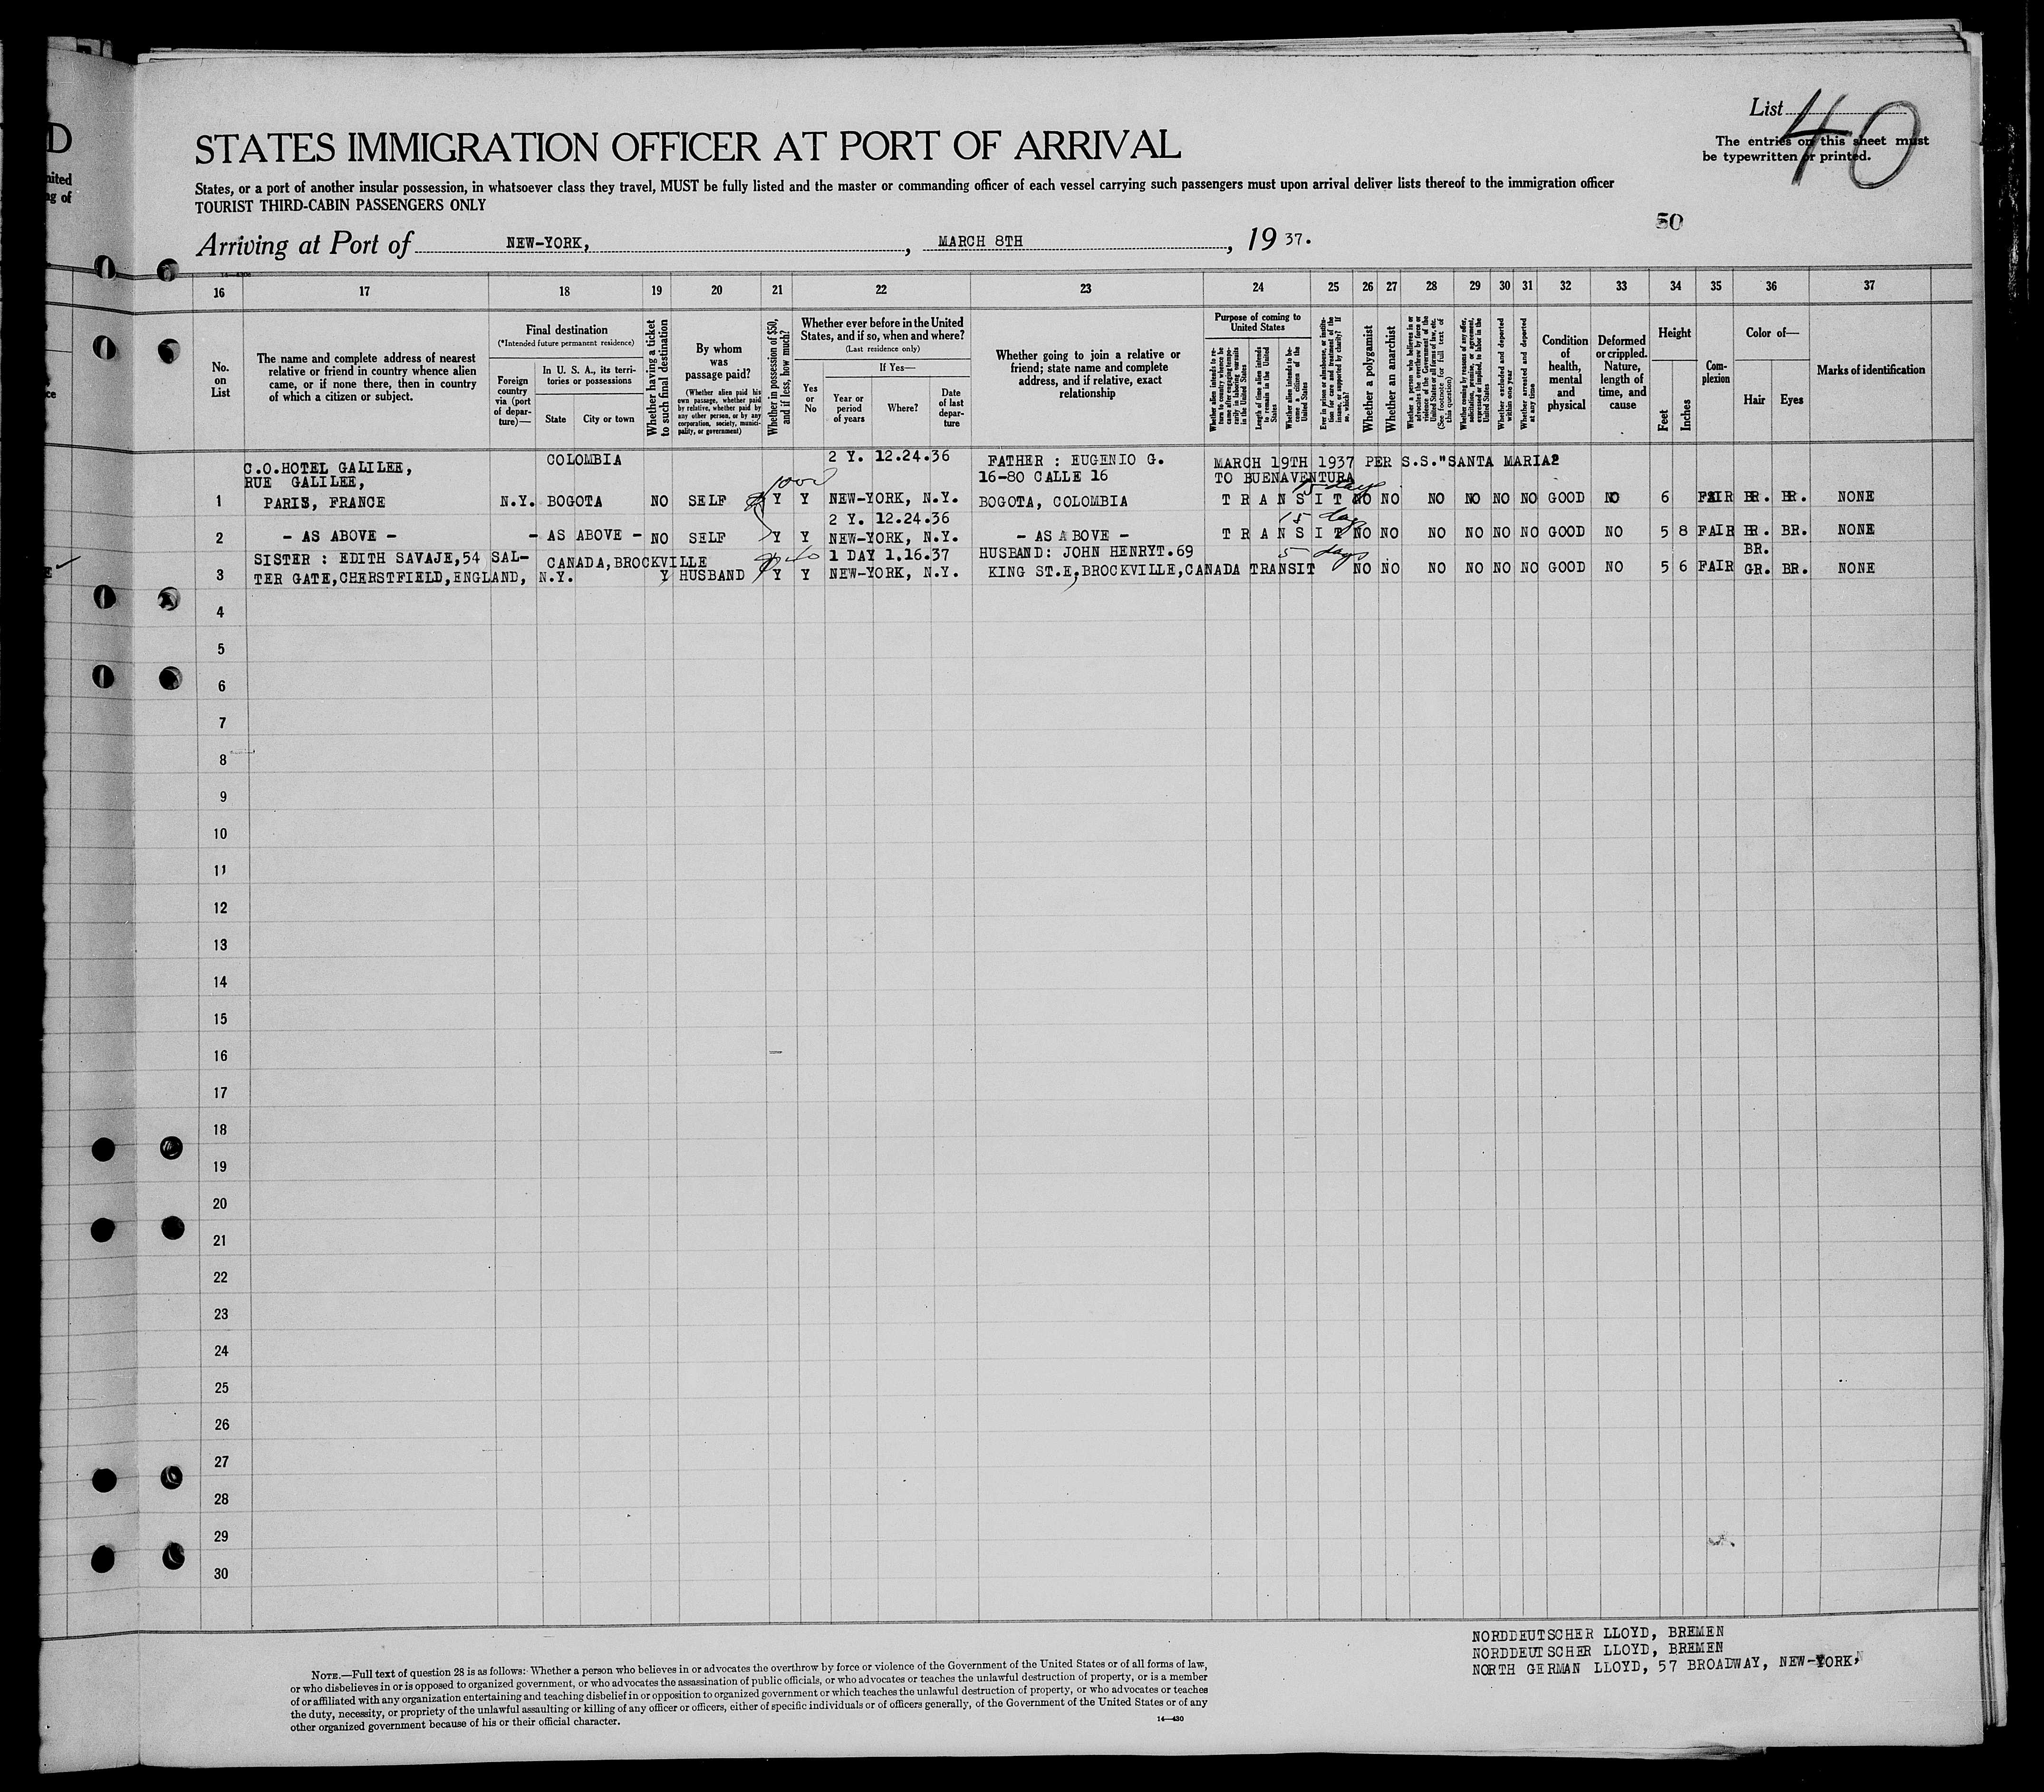 List 40
STATES IMMIGRATION OFFICER AT PORT OF ARRIVAL
The entries on this sheet must
be typewritten or printed.
States, or a port of another insular possession, in whatsoever class they travel, MUST be fully listed and the master or commanding officer of each vessel carrying such passengers must upon arrival deliver lists thereof to the immigration officer
TOURIST THIRD-CABIN PASSENGERS ONLY
50
Arriving at Port of NEW-YORK, , MARCH 8TH , 19 37.
16 17 18 19 20 21 22 23 24 25 26 27 28 29 30 31 32 33 34 35 36 37
No. on List
The name and complete address of nearest relative or friend in country whence alien came, or if none there, then in country of which a citizen or subject.
Final destination
(*Intended future permanent residence)
Foreign country via (port of departure)—
In U. S. A., its territories or possessions
State
City or town
Whether having a ticket to such final destination
By whom was passage paid?
(Whether alien paid his own passage, whether paid by relative, whether paid by any other person, or by any corporation, society, municipality, or government)
Whether in possession of $50, and if less, how much?
Whether ever before in the United States, and if so, when and where?
(Last residence only)
Yes or No
If Yes—
Year or period of years
Where?
Date of last departure
Whether going to join a relative or friend; state name and complete address, and if relative, exact relationship
Purpose of coming to United States
Whether alien intends to return to country whence he came after engaging temporarily in laboring pursuits in the United States
Length of time alien intends to remain in the United States
Whether alien intends to become a citizen of the United States
Ever in prison or almshouse, or institution for care and treatment of the insane, or supported by charity? If so, which?
Whether a polygamist
Whether an anarchist
Whether a person who believes in or advocates the overthrow by force or violence of the Government of the United States or all forms of law, etc. (See footnote for full text of this question)
Whether coming by reasons of any offer, solicitation, promise, or agreement, expressed or implied, to labor in the United States
Whether excluded and deported within one year
Whether arrested and deported at any time
Condition of health, mental and physical
Deformed or crippled. Nature, length of time, and cause
Height
Feet
Inches
Complexion
Color of—
Hair
Eyes
Marks of identification
C.O.HOTEL GALILEE, COLOMBIA 2 Y. 12.24.36 FATHER : EUGENIO G. MARCH 19TH 1937 PER S.S."SANTA MARIA2
RUE GALILEE, 1000 16-80 CALLE 16 TO BUENAVENTURA
15 days
1 PARIS, FRANCE N.Y. BOGOTA NO SELF Y Y NEW-YORK, N.Y. BOGOTA, COLOMBIA T R A N S I T NO NO NO NO NO NO GOOD NO 6 FAIR BR. BR. NONE
2 Y. 12.24.36 15 days
2 - AS ABOVE - - AS ABOVE - NO SELF Y Y NEW-YORK, N.Y. - AS ABOVE - T R A N S I T NO NO NO NO NO NO GOOD NO 5 8 FAIR BR. BR. NONE
SISTER : EDITH SAVAJE,54 SAL- CANADA,BROCKVILLE 1 DAY 1.16.37 HUSBAND: JOHN HENRYT.69 5 days BR.
3 TER GATE,CHERSTFIELD,ENGLAND, N.Y. Y HUSBAND Y Y NEW-YORK, N.Y. KING ST.E,BROCKVILLE,CANADA TRANSIT NO NO NO NO NO NO GOOD NO 5 6 FAIR GR. BR. NONE
4
5
6
7
8
9
10
11
12
13
14
15
16
17
18
19
20
21
22
23
24
25
26
27
28
29
30
NORDDEUTSCHER LLOYD, BREMEN
NORDDEUTSCHER LLOYD, BREMEN
NORTH GERMAN LLOYD, 57 BROADWAY, NEW-YORK,
NOTE.—Full text of question 28 is as follows: Whether a person who believes in or advocates the overthrow by force or violence of the Government of the United States or of all forms of law,
or who disbelieves in or is opposed to organized government, or who advocates the assassination of public officials, or who advocates or teaches the unlawful destruction of property, or is a member
of or affiliated with any organization entertaining and teaching disbelief in or opposition to organized government or which teaches the unlawful destruction of property, or who advocates or teaches
the duty, necessity, or propriety of the unlawful assaulting or killing of any officer or officers, either of specific individuals or of officers generally, of the Government of the United States or of any
other organized government because of his or their official character.
14—430